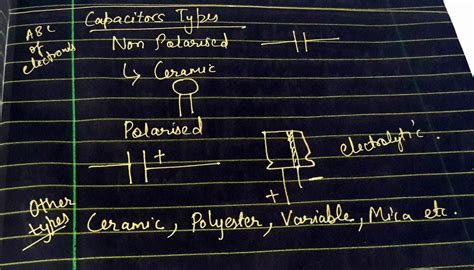 ABC
of
electronics
Capacitors Types
Non Polarised
↳ Ceramic
Polarised
+
electrolytic.
+ –
Other
types
Ceramic, Polyester, Variable, Mica etc.